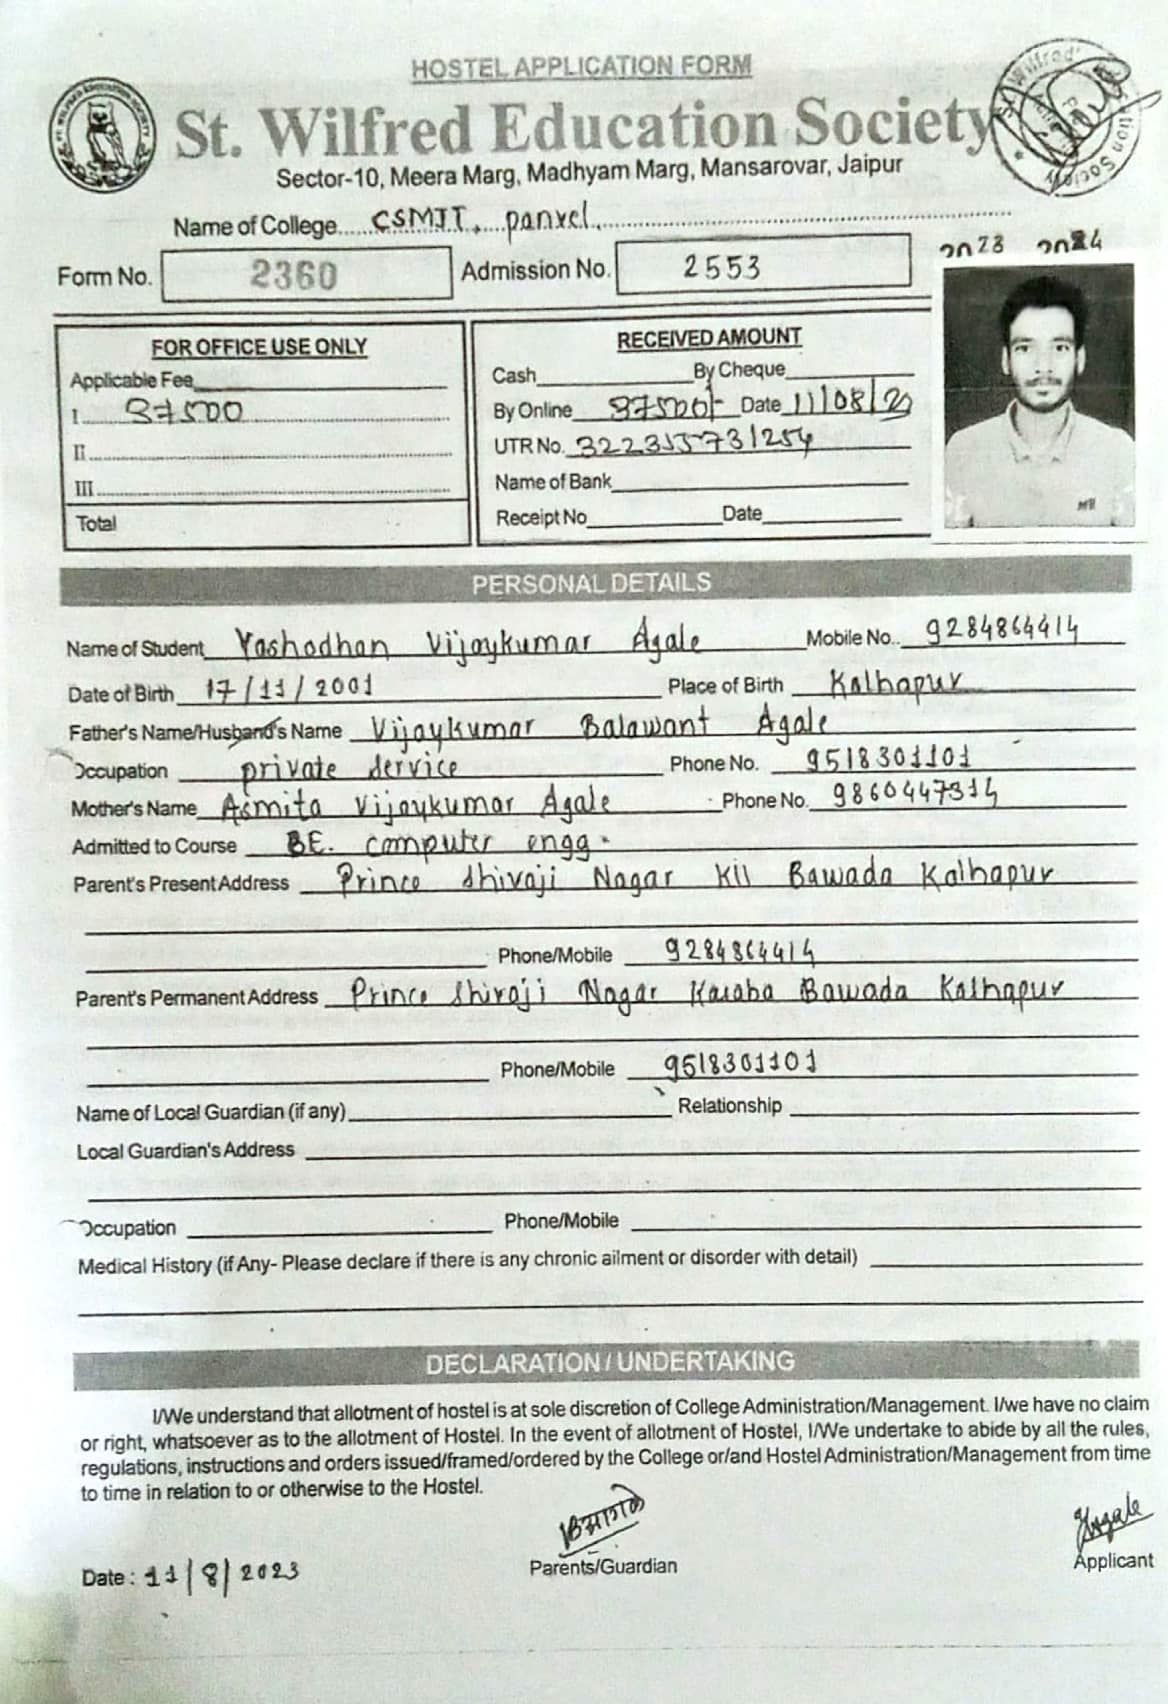 HOSTEL APPLICATION FORM
St. Wilfred Education Society
Sector-10, Meera Marg, Madhyam Marg, Mansarovar, Jaipur
Name of College CSMIT, panvel
2023 2024
Form No. 2360 Admission No. 2553
FOR OFFICE USE ONLY
Applicable Fee
I 37500
II
III
Total
RECEIVED AMOUNT
Cash By Cheque
By Online 37500/- Date 11/08/23
UTR No. 322315731254
Name of Bank
Receipt No Date
PERSONAL DETAILS
Name of Student Yashodhan Vijaykumar Agale Mobile No. 9284864414
Date of Birth 17/11/2001 Place of Birth Kolhapur
Father's Name/Husband's Name Vijaykumar Balawant Agale
Occupation private service Phone No. 9518301101
Mother's Name Asmita Vijaykumar Agale Phone No. 9860447314
Admitted to Course BE. computer engg.
Parent's Present Address Prince Shivaji Nagar Bawada Kolhapur
Phone/Mobile 9284864414
Parent's Permanent Address Prince Shivaji Nagar Kasaba Bawada Kolhapur
Phone/Mobile 9518301101
Name of Local Guardian (if any) Relationship
Local Guardian's Address
Occupation Phone/Mobile
Medical History (if Any- Please declare if there is any chronic ailment or disorder with detail)
DECLARATION / UNDERTAKING
I/We understand that allotment of hostel is at sole discretion of College Administration/Management. I/we have no claim
or right, whatsoever as to the allotment of Hostel. In the event of allotment of Hostel, I/We undertake to abide by all the rules,
regulations, instructions and orders issued/framed/ordered by the College or/and Hostel Administration/Management from time
to time in relation to or otherwise to the Hostel.
Date : 11/8/2023 Parents/Guardian Applicant